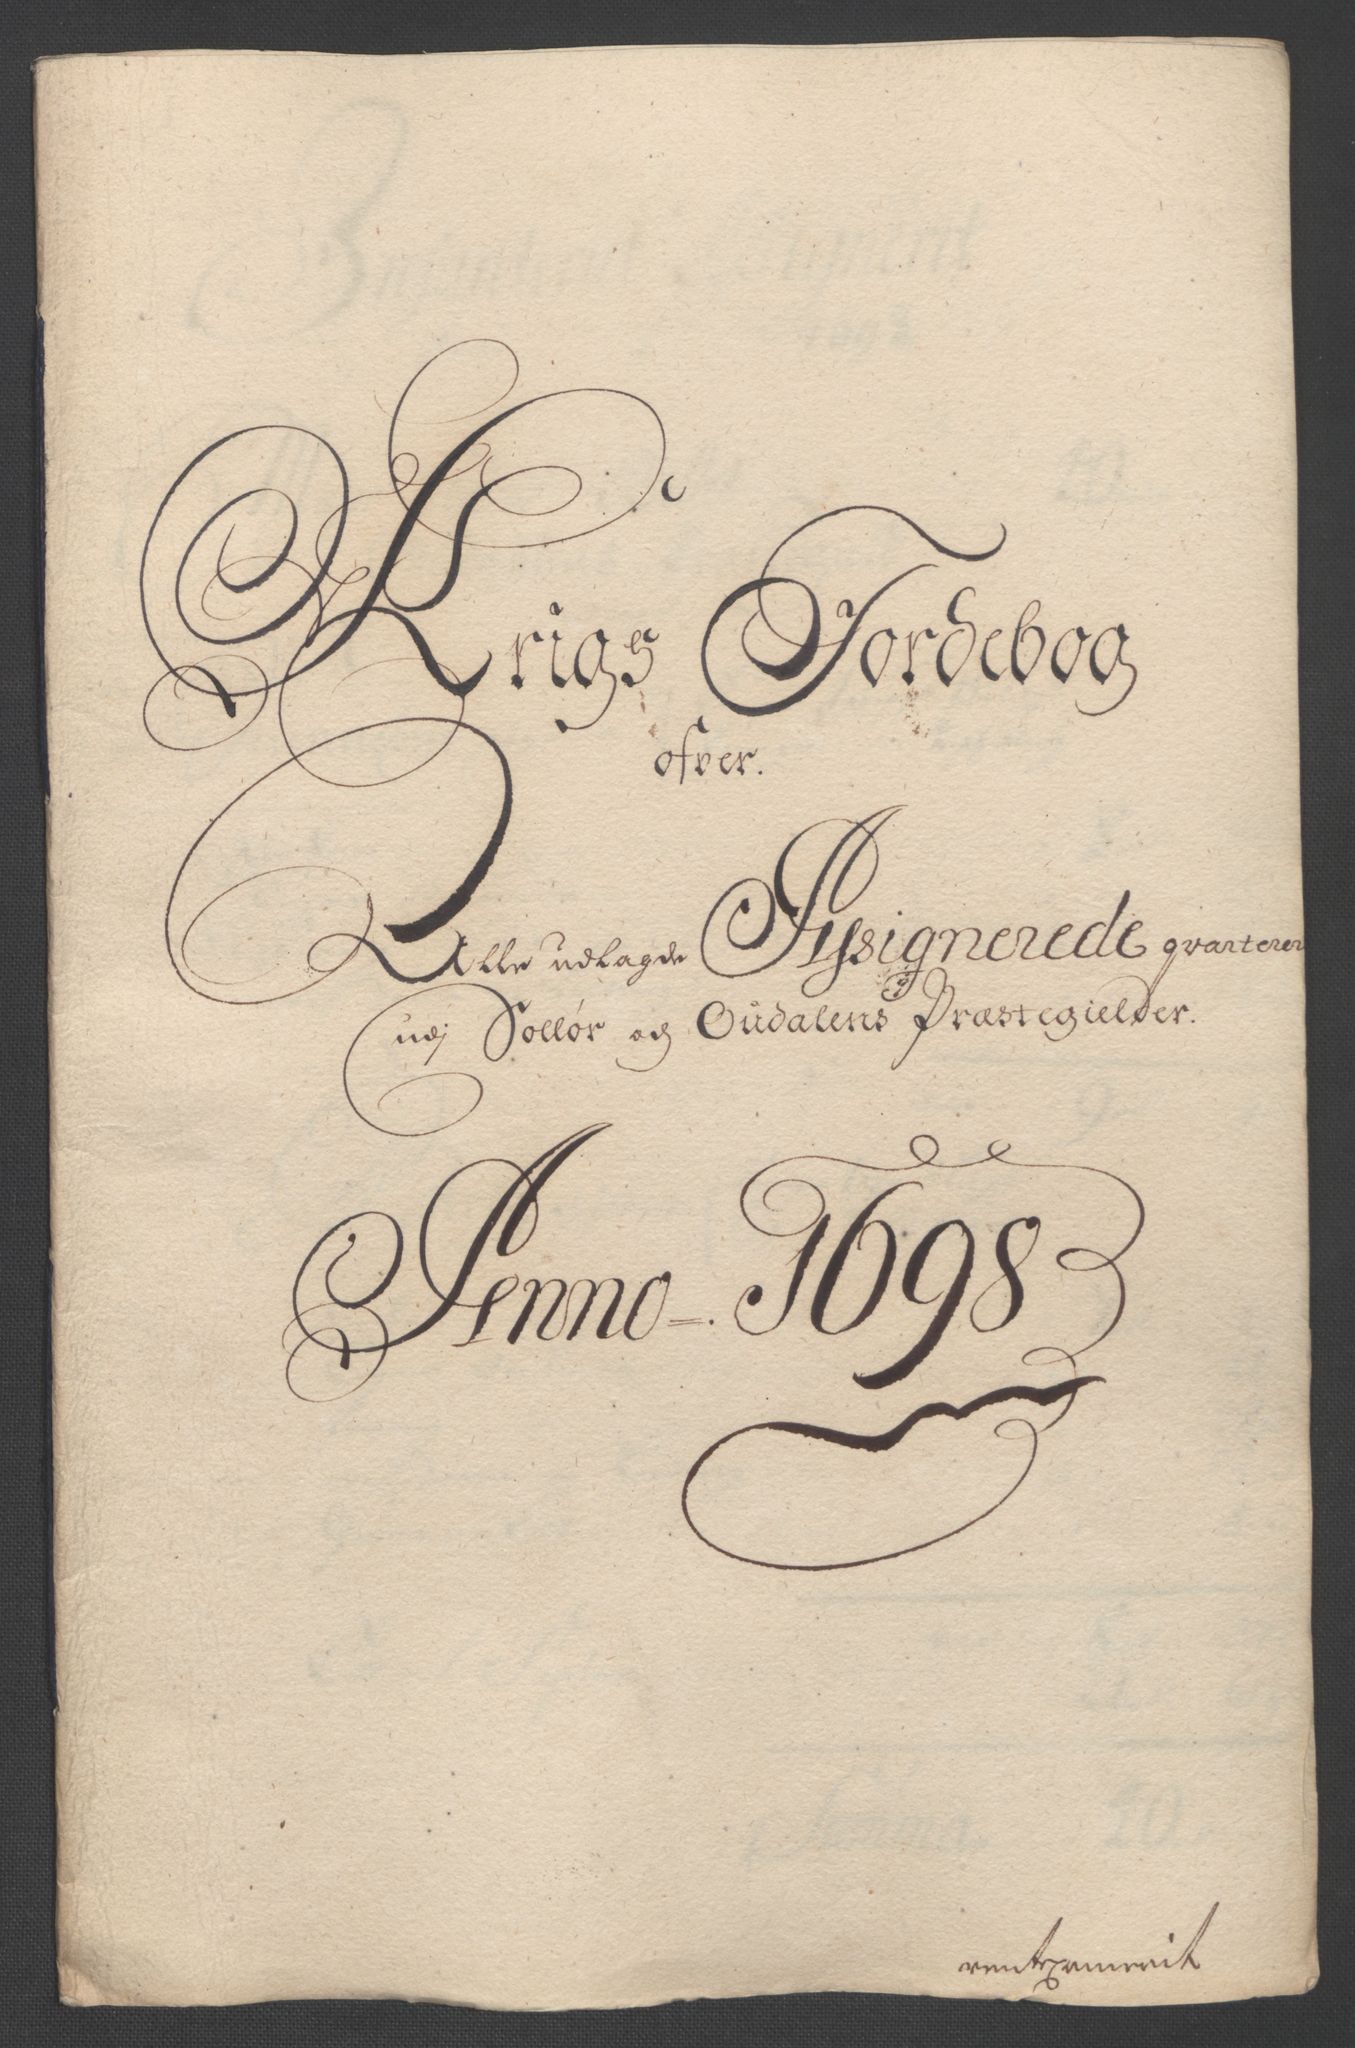 Krigs Jordebog
ofver.
Alle udlagde Assignerede qvarterer
udj Sollør og Oudalens Præstegielder.
Anno 1698